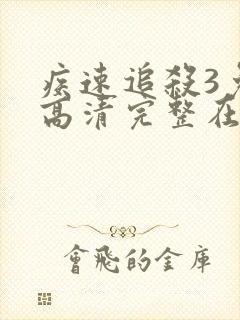 疾速追殺3
高清完整在
會飛的金庫